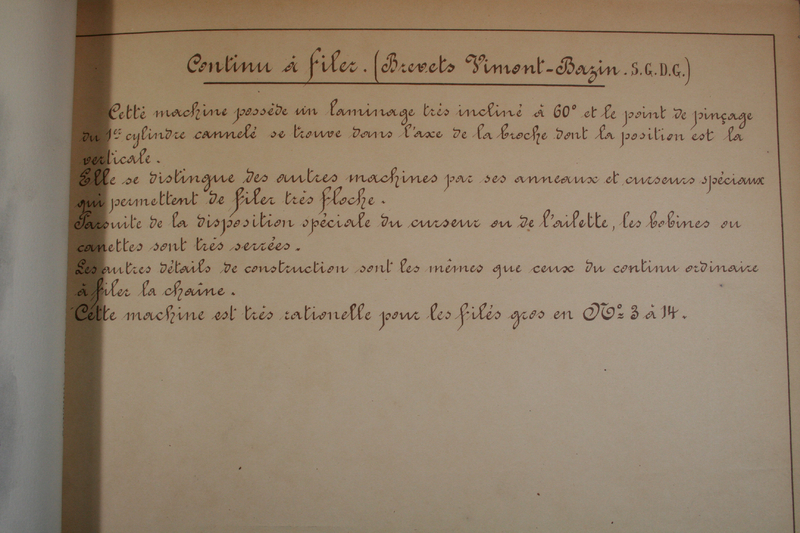 Continu à filer. (Brevets Vimont-Bazin. S.G.D.G.)
Cette machine possède un laminage très incliné à 60° et le point de pinçage
du 1er cylindre cannelé se trouve dans l'axe de la broche dont la position est la
verticale.
Elle se distingue des autres machines par ses anneaux et curseurs spéciaux
qui permettent de filer très floche.
Parsuite de la disposition spéciale du curseur ou de l'ailette, les bobines ou
canettes sont très serrées.
Les autres détails de construction sont les mêmes que ceux du continu ordinaire
à filer la chaîne.
Cette machine est très rationelle pour les filés gros en Nos 3 à 14.